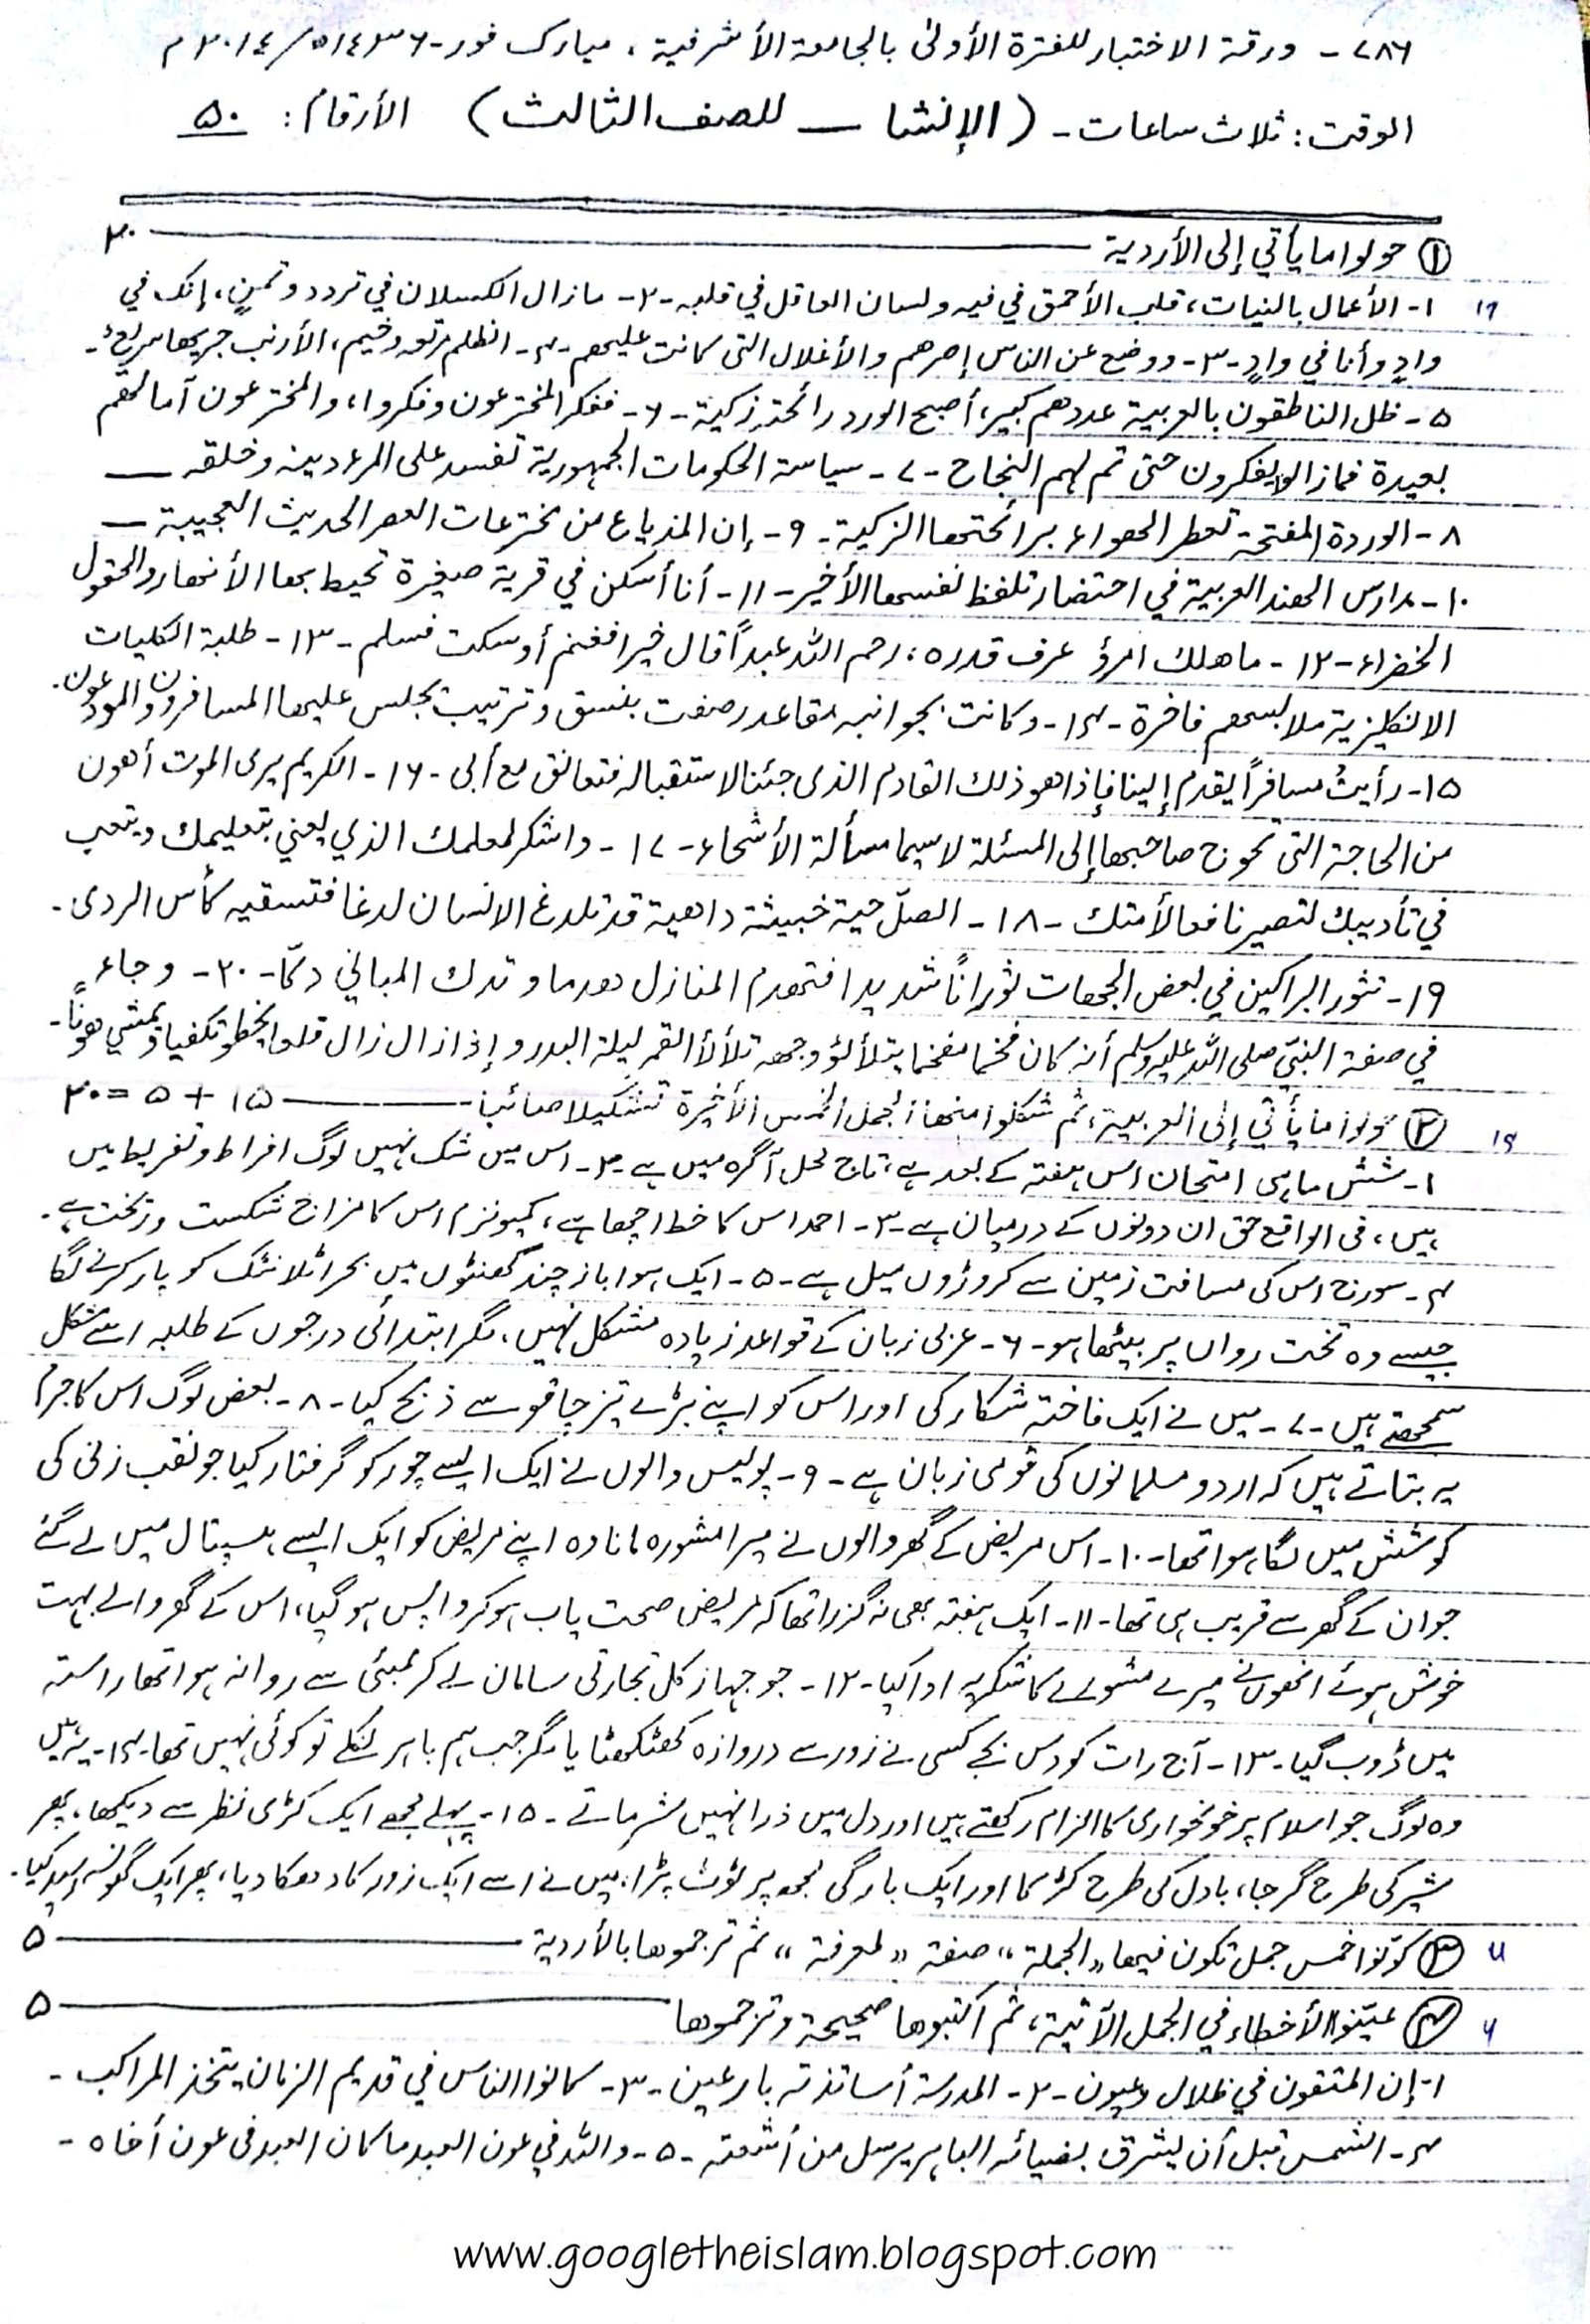 ٧٨٦ - ورقة الاختبار للفترة الأولىٰ بالجامعة الأشرفية، مبارك فور - ١٤٣٦ھ/٢٠١٤م
الوقت: ثلاث ساعات - (الإنشا — للصف الثالث) الأرقام: ٥٠
① حولوا ما يأتي إلى الأردية — ٢٠
١- الأعمال بالنيات، قلب الأحمق في فيه ولسان العاقل في قلبه - ٢- مازال الكسلان في تردد وتمنٍ، إنك في
وادٍ وأنا في وادٍ - ٣- ووضع عن الناس إصرهم والأغلال التى كانت عليهم - ۴- الظلم مرتعه وخيم، الأرنب جريها سريع -
٥- ظل الناطقون بالعربية عددهم كبير، أصبح الورد رائحته زكية - ٦- ففكر المخترعون وفكروا، والمخترعون آمالهم
بعيدة فمازالوا يفكرون حتى تم لهم النجاح - ٧- سياسة الحكومات الجمهورية تفسد على المرء دينه وخلقه —
٨- الوردة المفتحة تعطر الهواء برائحتها الزكية - ٩- إن المذياع من مخترعات العصر الحديث العجيبة —
١٠- مدارس الهند العربية في احتضار تلفظ نفسها الأخير - ١١- أنا أسكن في قرية صغيرة تحيط بها الأنهار والحقول
الخضراء - ١٢- ما هلك امرؤ عرف قدره، رحم الله عبداً قال خيرا فغنم أو سكت فسلم - ١٣- طلبة الكليات
الانكليزية ملابسهم فاخرة - ١۴- وكانت بجوانبه مقاعد رصفت بنسق وترتيب يجلس عليها المسافرون والمودعون.
١٥- رأيتُ مسافراً يقدم إلينا فإذا هو ذلك القادم الذى جئنا لاستقباله فتعانق مع أبى - ١٦- الكريم يرى الموت أهون
من الحاجة التى تحوج صاحبها إلى المسئلة لاسيما مسألة الأشحاء - ١٧- واشكر لمعلمك الذي يعني بتعليمك ويتعب
في تأديبك لتصير نافعا لأمتك - ١٨- الصلّ حية خبيثة داهية قد تلدغ الانسان لدغا فتسقيه كأس الردى -
١٩- تثور البراكين في بعض الجهات ثوراناً شديدا فتهدم المنازل هدما وتدك المباني دكّا - ٢٠- وجاء
في صفة النبيّ صلى الله عليه وسلم أنه كان فخما مفخما يتلألؤ وجهه تلألأ القمر ليلة البدر وإذا زال زال قلعا يخطو تكفيا ويمشي هوناً -
② حولوا ما يأتي إلى العربية، ثم شكلوا منها الجمل الخمس الأخيرة تشكيلا صائبا — ١٥ + ٥ = ٢٠
١- شش ماہی امتحان اس ہفتہ کے بعد ہے، تاج محل آگرہ میں ہے - ٢- اس میں شک نہیں لوگ افراط و تفریط میں
ہیں، فی الواقع حق ان دونوں کے درمیان ہے - ٣- احمد اس کا خط اچھا ہے، کمیونزم اس کا مزاج شکست و ریخت ہے -
۴- سورج اس کی مسافت زمین سے کروڑوں میل ہے - ٥- ایک ہوا باز چند گھنٹوں میں بحر اٹلانٹک کو پار کرنے لگا
جیسے وہ تخت رواں پر بیٹھا ہو - ٦- عربی زبان کے قواعد زیادہ مشکل نہیں، مگر ابتدائی درجوں کے طلبہ اسے مشکل
سمجھتے ہیں - ٧- میں نے ایک فاختہ شکار کی اور اس کو اپنے بڑے تیز چاقو سے ذبح کیا - ٨- بعض لوگ اس کا جرم
یہ بتاتے ہیں کہ اردو مسلمانوں کی قومی زبان ہے - ٩- پولیس والوں نے ایک ایسے چور کو گرفتار کیا جو نقب زنی کی
کوشش میں لگا ہوا تھا - ١٠- اس مریض کے گھر والوں نے میرا مشورہ مانا وہ اپنے مریض کو ایک ایسے ہسپتال میں لے گئے
جو ان کے گھر سے قریب ہی تھا - ١١- ایک ہفتہ بھی نہ گزرا تھا کہ مریض صحت یاب ہو کر واپس ہو گیا، اس کے گھر والے بہت
خوش ہوئے انھوں نے میرے مشورے کا شکریہ ادا کیا - ١٢- جو جہاز کل تجارتی سامان لے کر ممبئی سے روانہ ہوا تھا راستہ
میں ڈوب گیا - ١٣- آج رات کو دس بجے کسی نے زور سے دروازہ کھٹکھٹایا مگر جب ہم باہر نکلے تو کوئی نہیں تھا - ١۴- یہ ہیں
وہ لوگ جو اسلام پر خونخواری کا الزام رکھتے ہیں اور دل میں ذرا نہیں شرماتے - ١٥- پہلے مجھے ایک کڑی نظر سے دیکھا، پھر
شیر کی طرح گرجا، بادل کی طرح کڑکا اور ایک بارگی مجھ پر ٹوٹ پڑا، میں نے اسے ایک زور کا دھکا دیا، پھر ایک گھونسہ رسید کیا -
③ كوّنوا خمس جمل تكون فيها "الجملة" صفة "لمعرفة" ثم ترجموها بالأردية — ٥
④ عيّنوا الأخطاء في الجمل الآتية، ثم اكتبوها صحيحة وترجموها — ٥
١- إن المتقون في ظلال وعيون - ٢- المدرسة أساتذته بارعين - ٣- كانوا الناس في قديم الزمان يتخذ المراكب -
۴- الشمس قبل أن يشرق بضيائه الباهر يرسل من أشعته - ٥- والله في عون العبد ما كان العبد فى عون أخاه -
www.googletheislam.blogspot.com